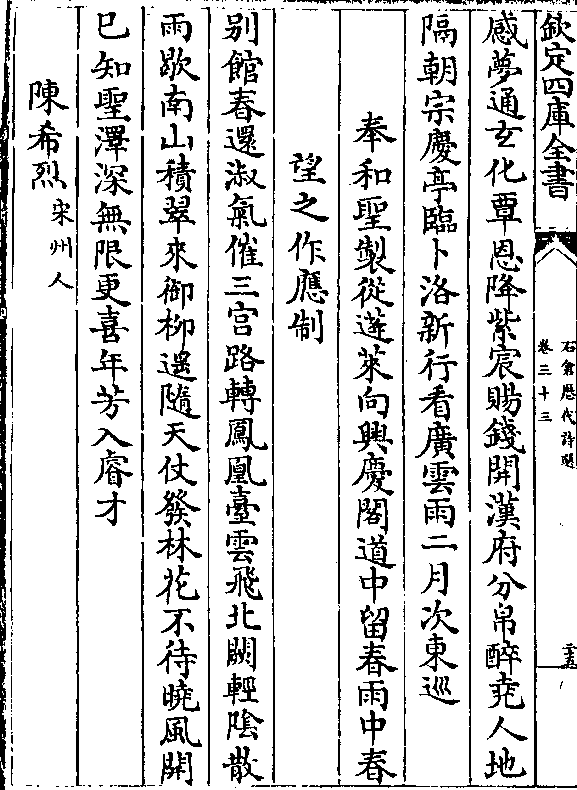 欽定四庫全書
石倉歷代詩選
卷三十三
感夢通玄化覃恩降紫宸賜錢開漢府分帛醉堯人地
隔朝宗慶亭臨卜洛新行看廣雲雨二月次東巡
奉和聖製從蓬萊向興慶閣道中留春雨中春
望之作應制
别館春還淑氣催三宫路轉鳳凰臺雲飛北闕輕陰散
雨歇南山積翠來御柳遥隨天仗發林花不待曉風開
已知聖澤深無限更喜年芳入睿才
陳希烈宋州人